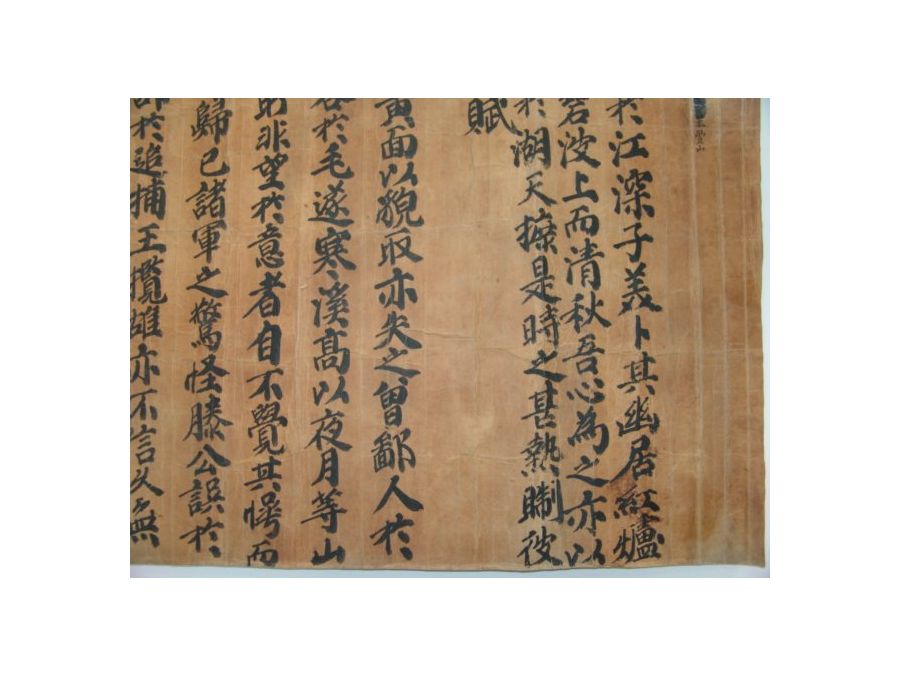 於江深子美卜其幽居紅爐
碧波上而清秋吾心為之亦以
於湖天據是時之甚熱賜彼
賦
黃面以貌取亦失之曾鄙人於
於毛遂寒溪高以夜月等山
則非望於意者自不覺其愕而
歸已諸軍之驚怪滕公誤於
於追捕王攬雄亦不言久無